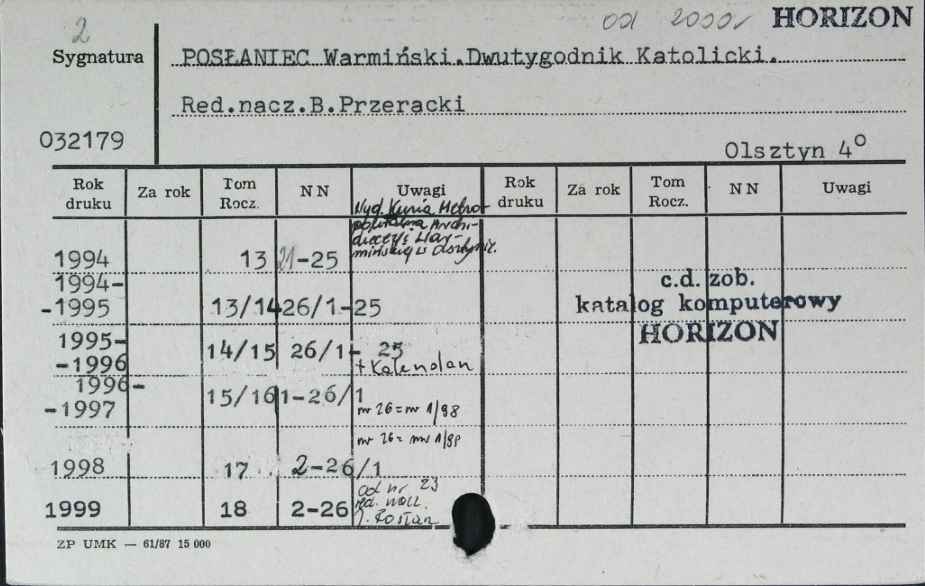 2 od 2000r HORIZON
Sygnatura POSŁANIEC Warmiński.Dwutygodnik Katolicki.
Red.nacz.B.Przeracki
032179 Olsztyn 4°
Rok druku Za rok Tom Rocz. NN Uwagi Rok druku Za rok Tom Rocz. NN Uwagi
Wyd. Kuria Metro-
politalna Archi-
diecezji War-
mińskiej w Olsztynie.
1994 13 21-25
1994-
-1995 13/14 26/1-25
c.d. zob.
katalog komputerowy
HORIZON
1995-
-1996 14/15 26/1- 25
+ Kalendarz
1996-
-1997 15/16 1-26/1
nr 26 = nr 1/98
nr 26 = nr 1/99
1998 17 2-26/1
od nr 23
1999 18 2-26 red. nacz.
J. Rosłan
ZP UMK — 61/87 15 000